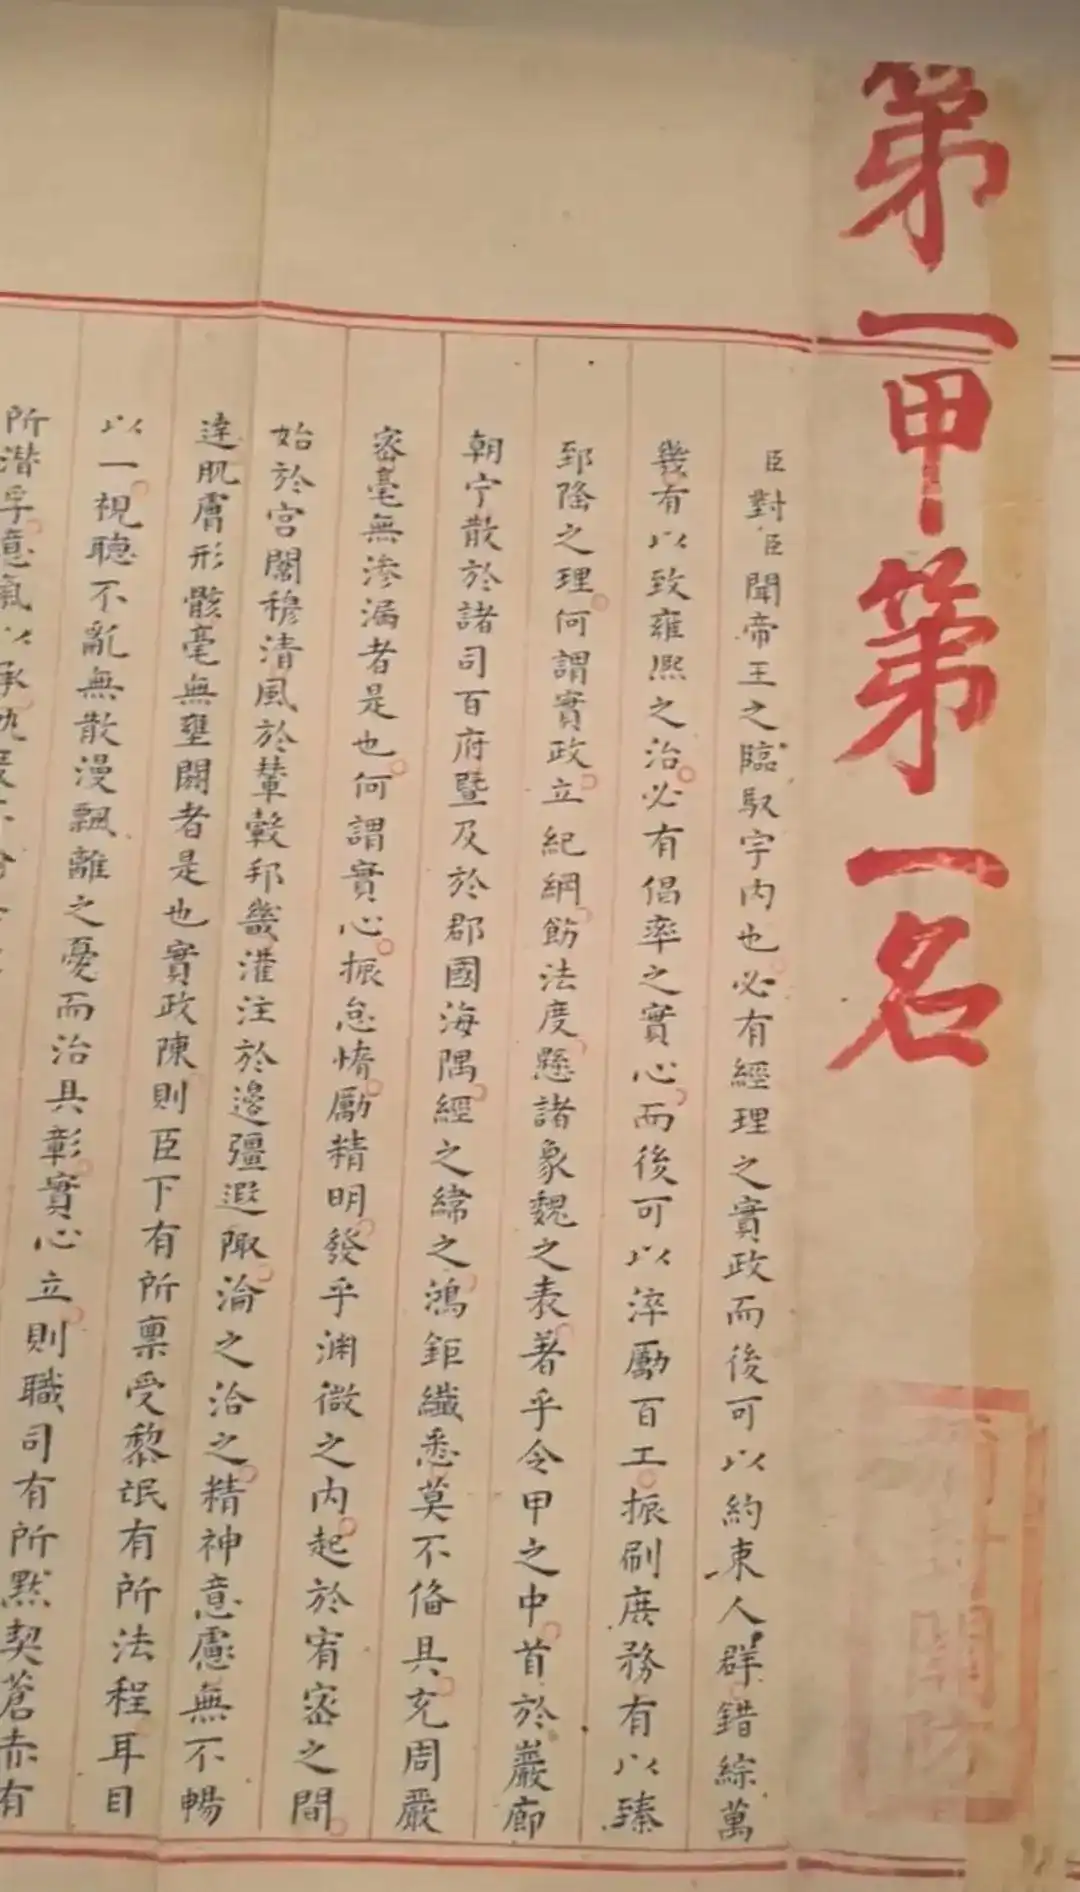 第一甲第一名
臣對臣聞帝王之臨馭宇內也必有經理之實政而後可以約束人群錯綜萬
幾有以致雍熙之治必有倡率之實心而後可以淬勵百工振刷庶務有以臻
郅隆之理何謂實政立紀綱飭法度懸諸象魏之表著乎令甲之中首於巖廊
朝宁散於諸司百府暨及於郡國海隅經之緯之鴻鉅纖悉莫不俻具充周嚴
密毫無滲漏者是也何謂實心振怠惰勵精明發乎淵微之內起於宥密之間
始於宮闈穆清風於輦轂邦畿灌注於邊疆遐陬淪之洽之精神意慮無不暢
達肌膚形骸毫無壅閼者是也實政陳則臣下有所稟受黎氓有所法程耳目
以一視聽不亂無散漫飄離之憂而治具彰實心立則職司有所默契蒼赤有
所潛孚意氣以承
關防